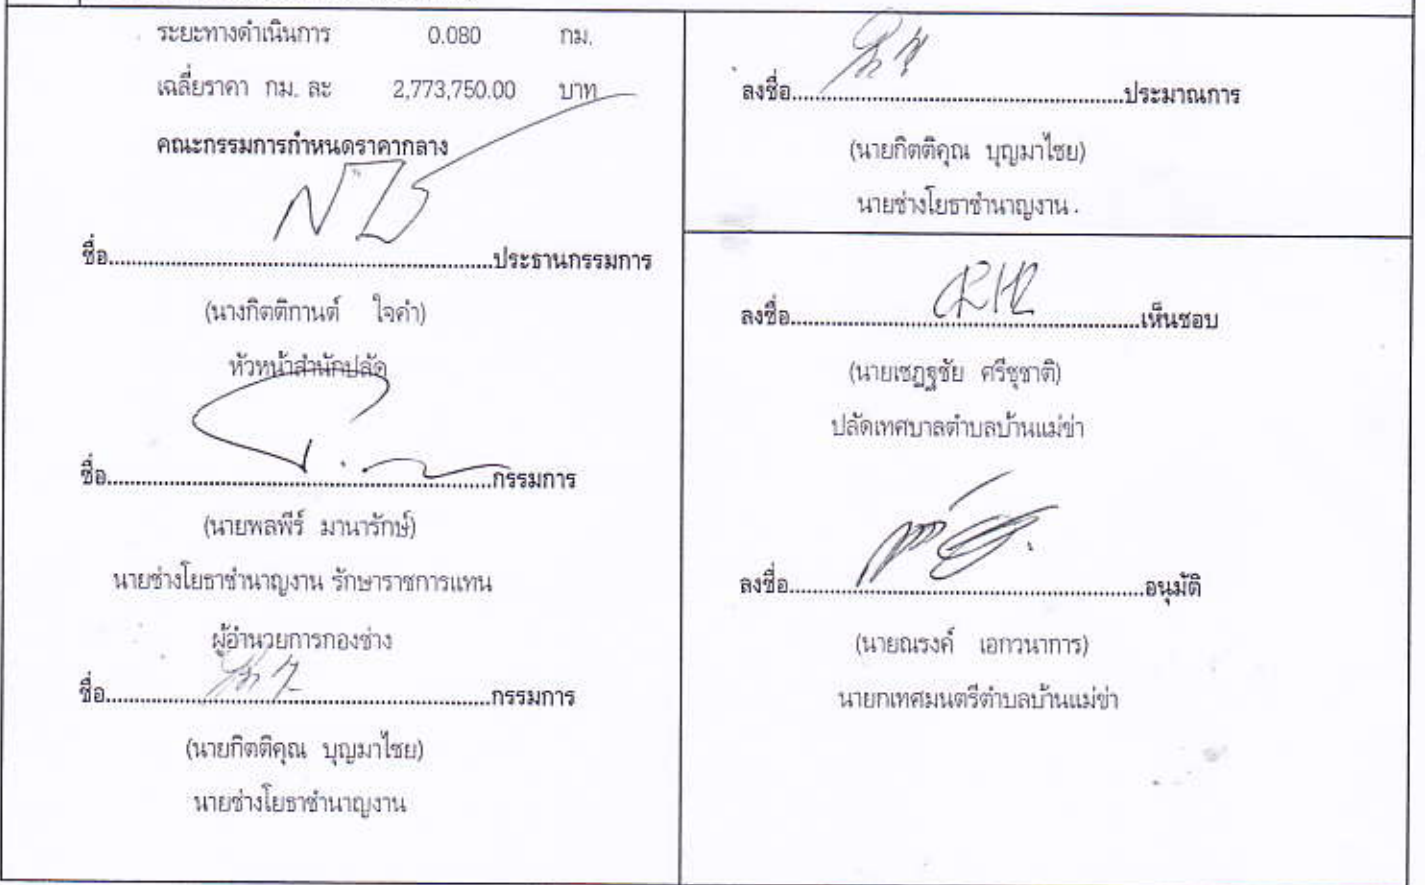 ระยะทางดำเนินการ 0.080 กม.
เฉลี่ยราคา กม. ละ 2,773,750.00 บาท
คณะกรรมการกำหนดราคากลาง
ชื่อ..........ประธานกรรมการ
(นางกิตติกานต์ ใจคำ)
หัวหน้าสำนักปลัด
ชื่อ..........กรรมการ
(นายพลพีร์ มานารักษ์)
นายช่างโยธาชำนาญงาน รักษาราชการแทน
ผู้อำนวยการกองช่าง
ชื่อ..........กรรมการ
(นายกิตติคุณ บุญมาไชย)
นายช่างโยธาชำนาญงาน
ลงชื่อ..........ประมาณการ
(นายกิตติคุณ บุญมาไชย)
นายช่างโยธาชำนาญงาน
ลงชื่อ..........เห็นชอบ
(นายเชฏฐชัย ศรีชุชาติ)
ปลัดเทศบาลตำบลบ้านแม่ข่า
ลงชื่อ..........อนุมัติ
(นายณรงค์ เอกวนาการ)
นายกเทศมนตรีตำบลบ้านแม่ข่า